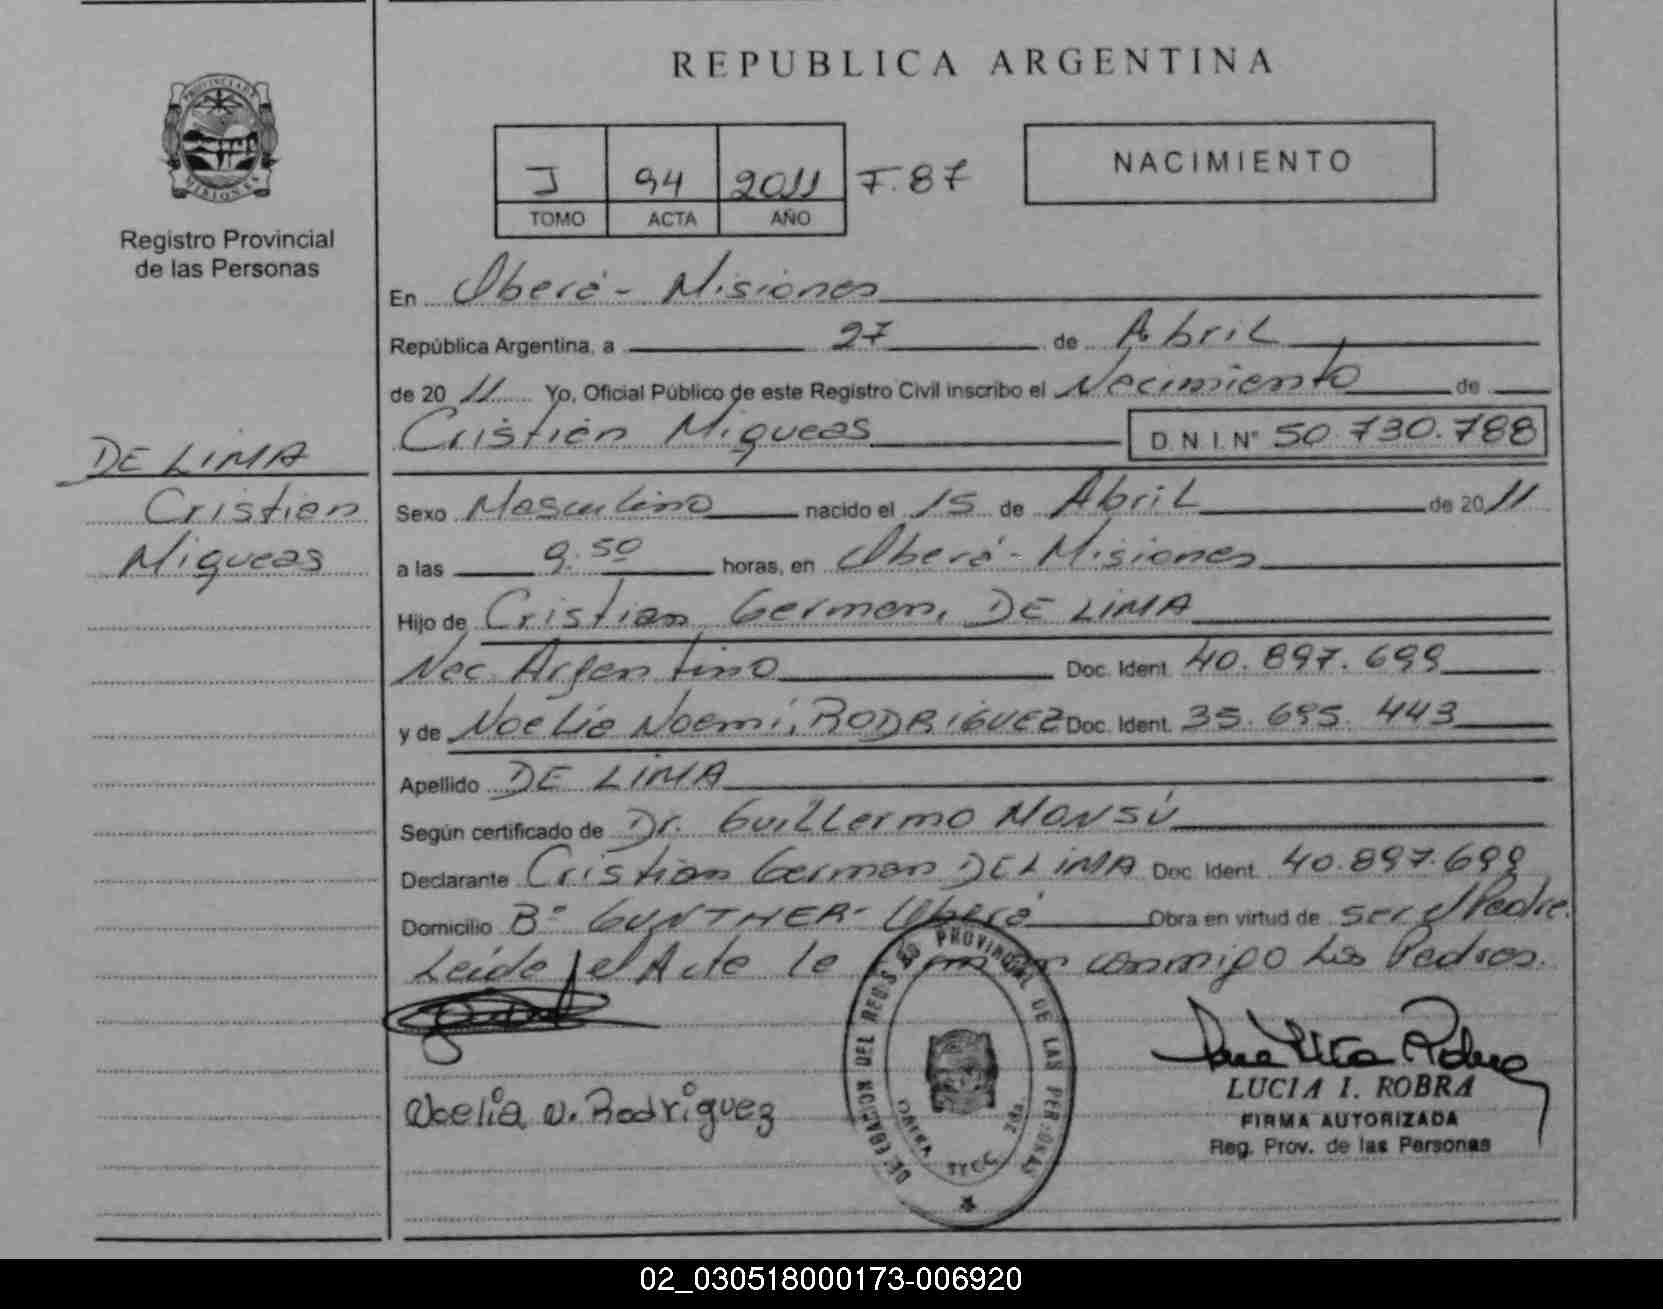 REPUBLICA ARGENTINA
PROVINCIA DE
MISIONES
Registro Provincial
de las Personas
J 94 2011 F.87
TOMO ACTA AÑO
NACIMIENTO
En Oberá - Misiones
República Argentina, a 27 de Abril
de 20 11 Yo, Oficial Público de este Registro Civil inscribo el Nacimiento de
Cristián Miqueas D.N.I.N° 50.730.788
DE LIMA
Cristian
Miqueas
Sexo Masculino nacido el 15 de Abril de 20 11
a las 9.50 horas, en Oberá - Misiones
Hijo de Cristian German, DE LIMA
Nac. Argentino Doc. Ident. 40.897.699
y de Noelia Noemí, RODRIGUEZ Doc. Ident. 35.695.443
Apellido DE LIMA
Según certificado de Dr. Guillermo MONSÚ
Declarante Cristian German DE LIMA Doc. Ident. 40.897.699
Domicilio B° GUNTHER - Oberá Obra en virtud de ser el Padre.
Leída el Acta la conmigo los Padres.
Noelia N. Rodriguez
DEL REGIS RO PROVINCIAL DE LAS PERSONAS
LUCIA I. ROBRA
FIRMA AUTORIZADA
Reg. Prov. de las Personas
02_030518000173-006920